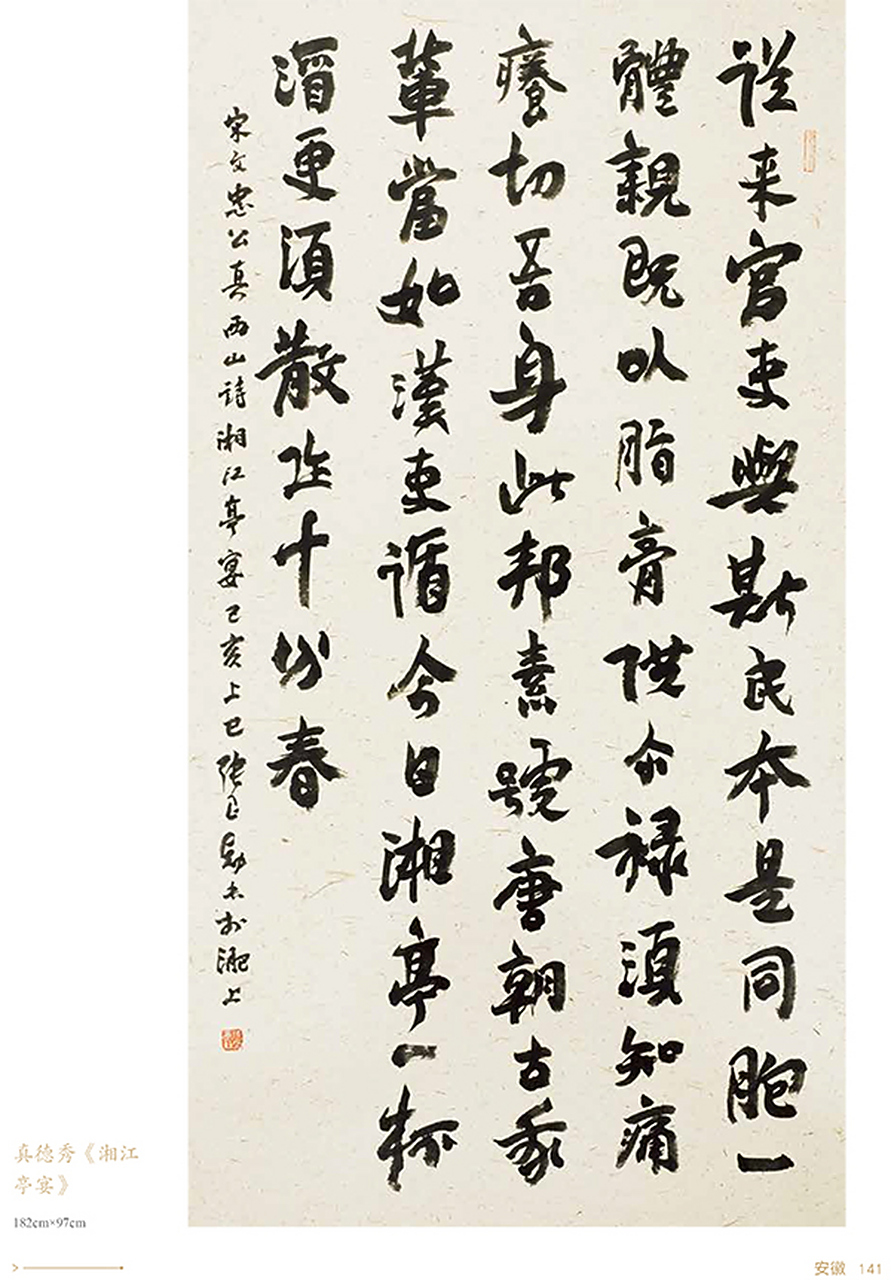 從来官吏與斯民本是同胞一
體親既以脂膏供尒禄須知痛
癢切吾身此邦素號唐朝古我
輩當如漢吏循今日湘亭一杯
酒更須散作十分春
宋文忠公真西山詩湘江亭宴己亥上巳張良勛書於淝上
真德秀《湘江
亭宴》
182cm×97cm
安徽 141